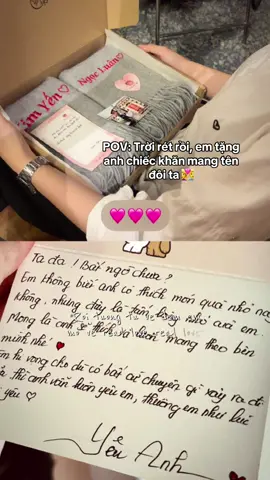 Kim Yến
Ngọc Luân
POV: Trời rét rồi, em tặng
anh chiếc khăn mang tên
đôi ta
Ta da! Bất ngờ chưa?
Em không biết anh có thích món quà nhỏ này
không, nhưng đây là tấm lòng nhỏ của em
Mong là anh sẽ thích và luôn mang theo bên
mình nhé
Em hi vọng cho dù có bất cứ chuyện gì xảy ra đi
thì anh vẫn luôn yêu em, thương em như lúc
yêu
Yêu Anh